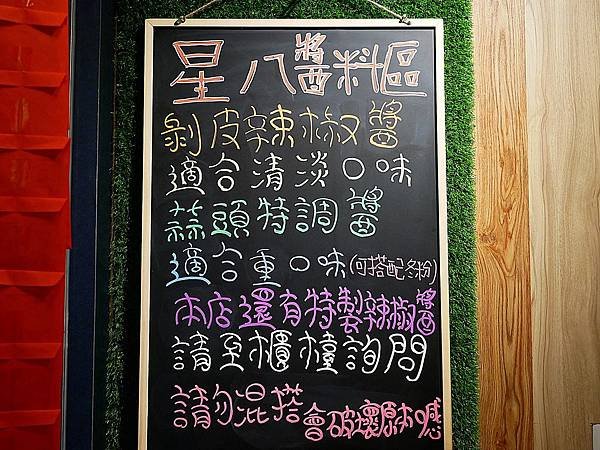 星八醬料區
剝皮辣椒醬
適合清淡口味
蒜頭特調醬
適合重口味(可搭配冬粉)
本店還有特製辣椒醬
請至櫃檯詢問
請勿混搭 會破壞原本口感